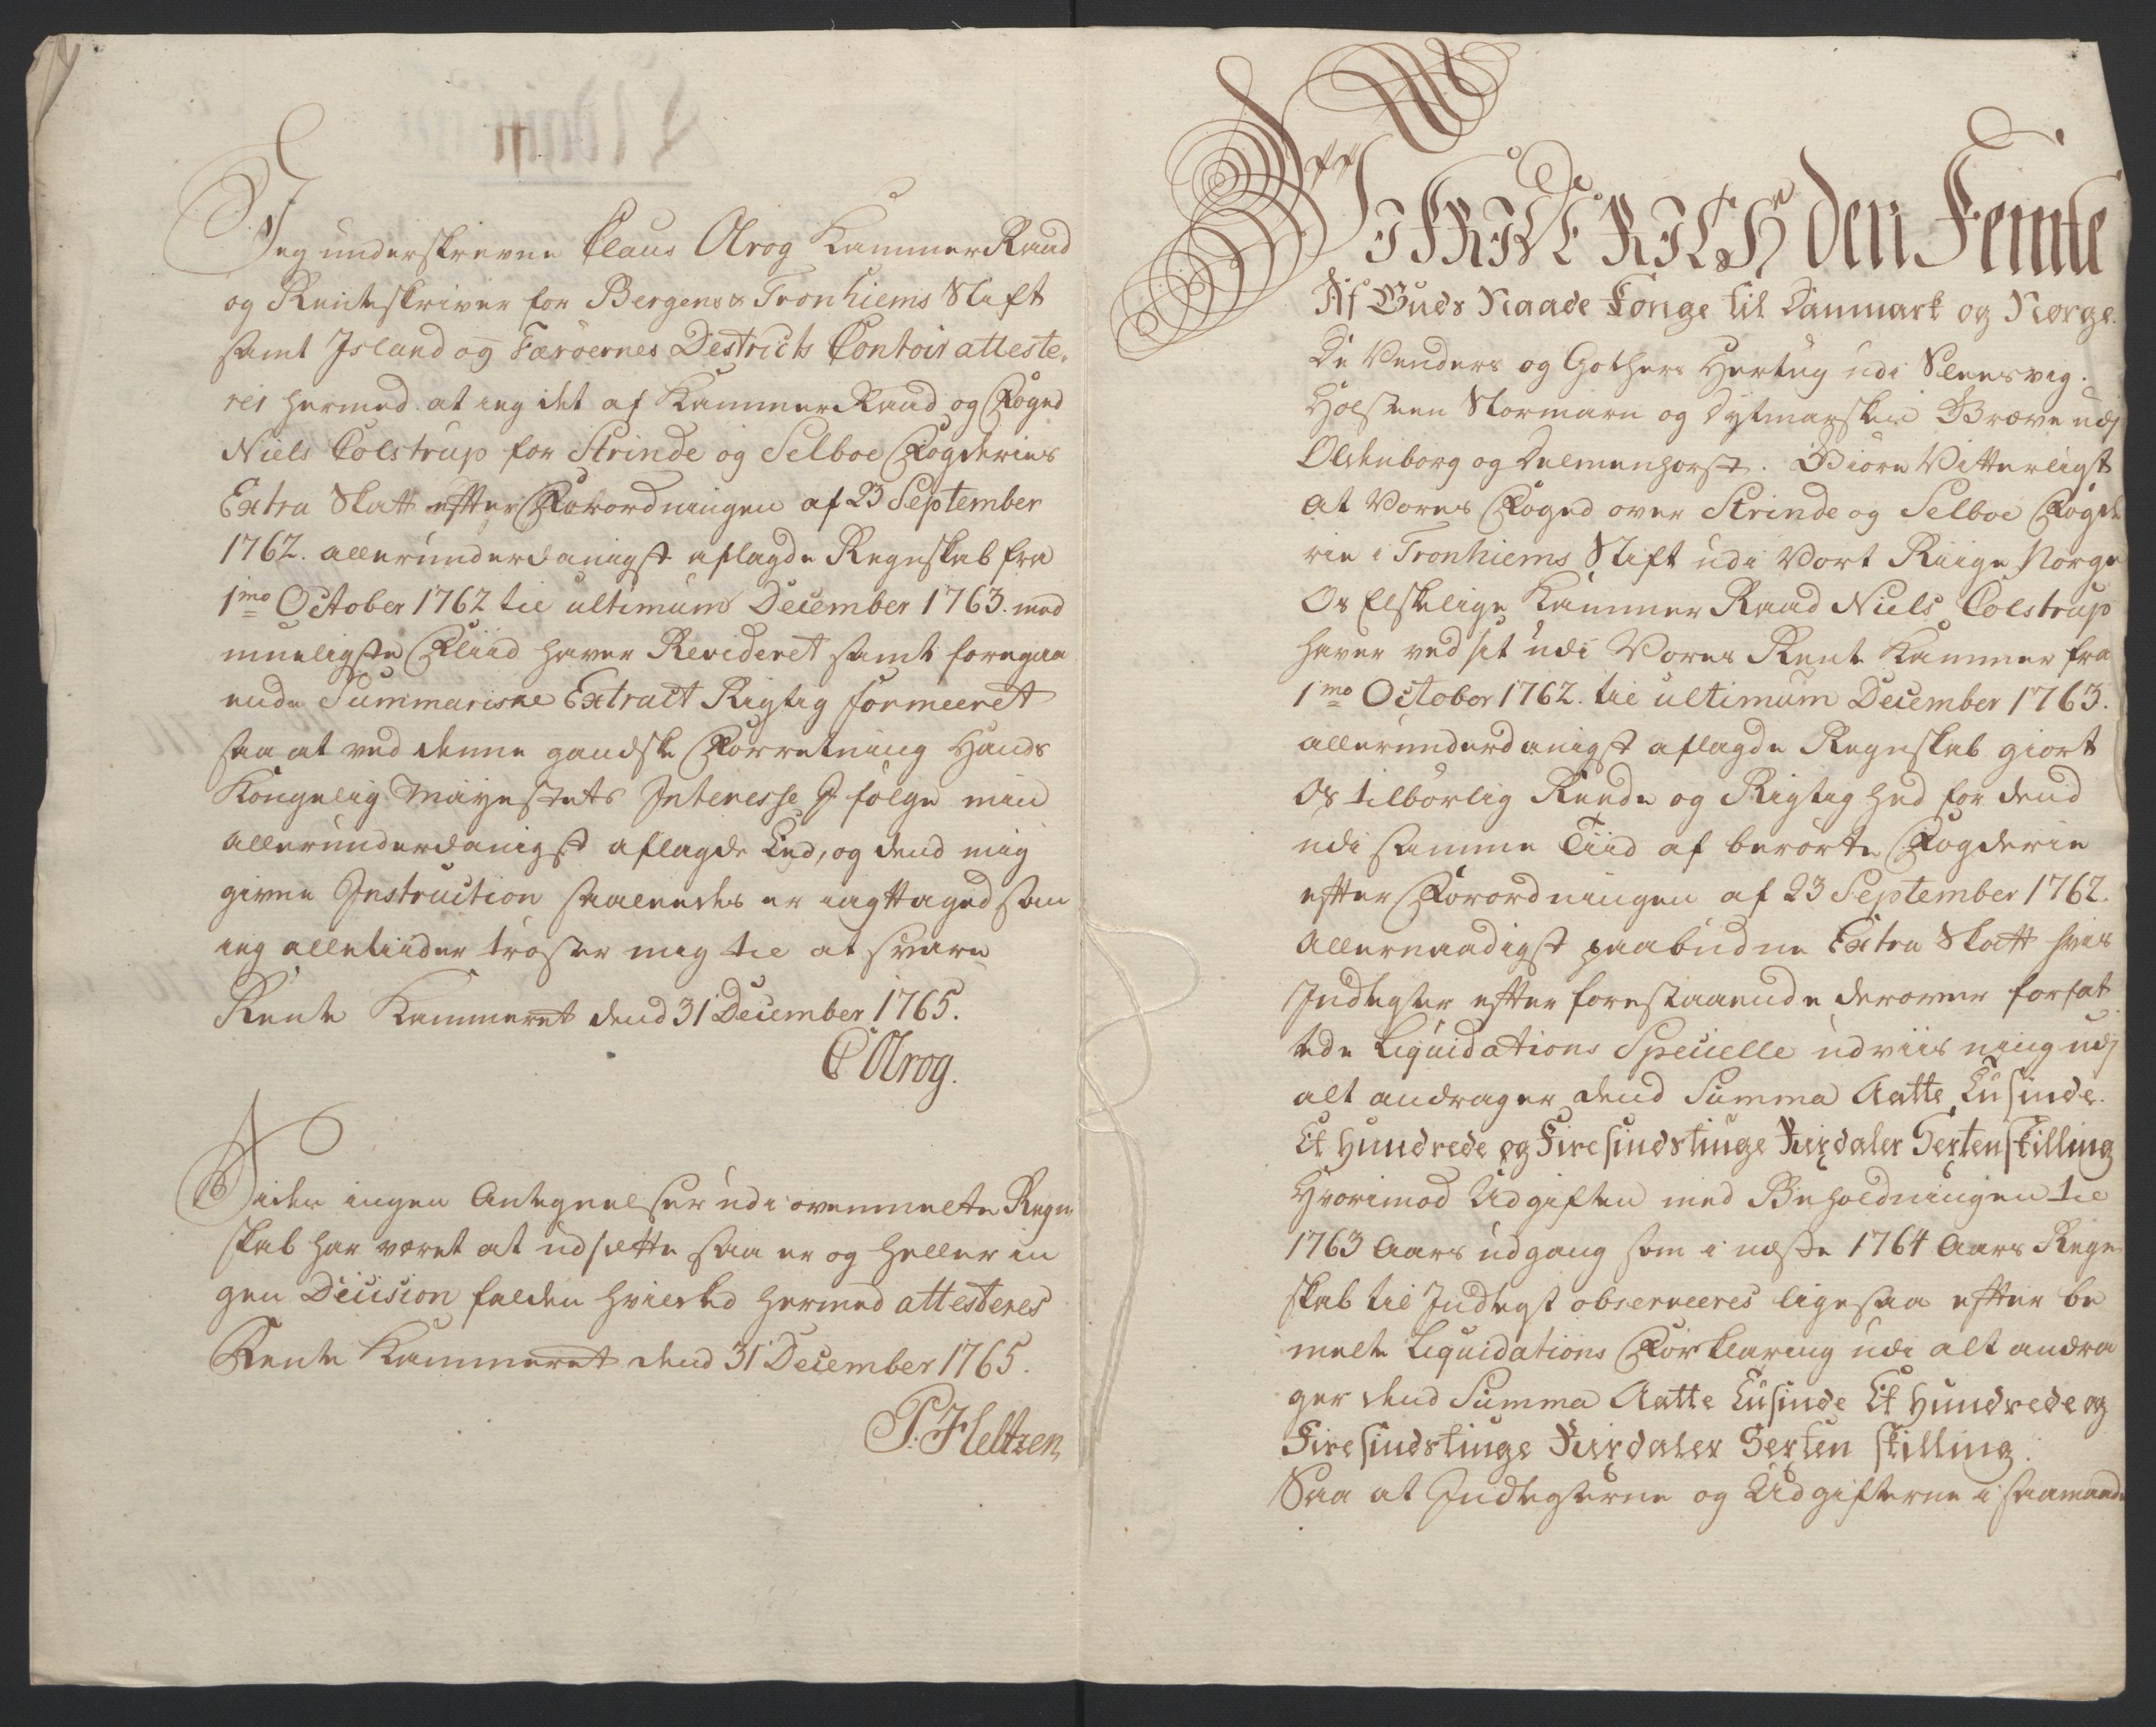 Jeg underskrevne Claus Olrog Kammer Raad
og Renteskriver for Bergens & Tronhiems Stift
samt Island og Færöernes Destricts Contoir atteste,
rer hermed at ieg det af Kammer Raad og Foged
Niels Colstrup for Strinde og Selboe Fogderies
Extra Skatt efter Forordningen af 23 September
1762. allerunderdanigst aflagde Regnskab fra
1mo October 1762 til ultimum December 1763. med
mueligste Fliid haver Revideret samt foregaa
ende Summariske Extract Rigtig formeeret
saa at ved denne gandske Forretning Hands
Kongelig Mayestets Interesse J følge min
allerunderdanigst aflagde Eed, og dend mig
given Instruction saaledes er iagttaged som
ieg alletiider trøster mig til at svare
Rente Kammeret dend 31 December 1765.
C Olrog.
Siden ingen Antegnelser udi ovenmelte Regn,
skab har været at udsætte saa er og heller in
gen Decision falden hvilked hermed attesteres
Rente Kammeret dend 31 December 1765.
P. Heltzen
Vi FRIDERICH den Femte
Af Guds Naade Konge til Danmark og Norge.
De Venders og Gothers Hertug udi Sleesvig.
Holsteen Stormarn og Dytmarsken Greve udj
Oldenborg og Delmenhorst. Giøre Vitterligt
at Vores Foged over Strinde og Selboe Fogde
rie i Tronhiems Stift udi Vort Riige Norge
Os Elskelige Kammer Raad Niels Colstrup
haver ved sit udi Vores Rente Kammer fra
1mo October 1762. til ultimum December 1763.
allerunderdanigst aflagde Regnskab giort
Os tilbørlig Reede og Rigtighed for dend
udi samme Tiid af berørte Fogderie
efter Forordningen af 23 September 1762.
Allernaadigst paabudne Extra Skatt hvis
Indtegter efter forestaaende derover forfat
tede Liquidations Specielle udviisning udj
alt andrager dend Summa Aatte Tusinde.
Et Hundrede og Firesindstiuge Rixdaler Sexten skilling
Hvorimod Udgiften med Beholdningen til
1763 Aars udgang som i næste 1764 Aars Regn
skab til Indtegt observeeres ligesaa efter be
melte Liquidations Forklaring udi alt andra
ger dend Summa Aatte Tusinde Et Hundrede og
Firesindstiuge Rixdaler Sexten skilling.
Saa at Indtegterne og Udgifterne i saamaade